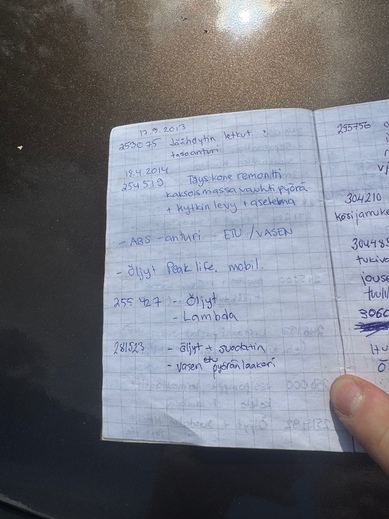 17.9.2013
253075 Jäähdytin letkut +
tasoanturi
18.4.2014
254510 Täys kone remontti
kaksoismassa vauhtipyörä
+ kytkin levy + asetelma
- ABS -anturi ETU / VASEN
- Öljyt Peak life, mobil.
255 427 - Öljyt
- Lambda
281523 - öljyt + suodatin
- vasen etu pyöränlaakeri
255756
304210
käsijarruk
30448
tukiva
jouse
tuuli
3060